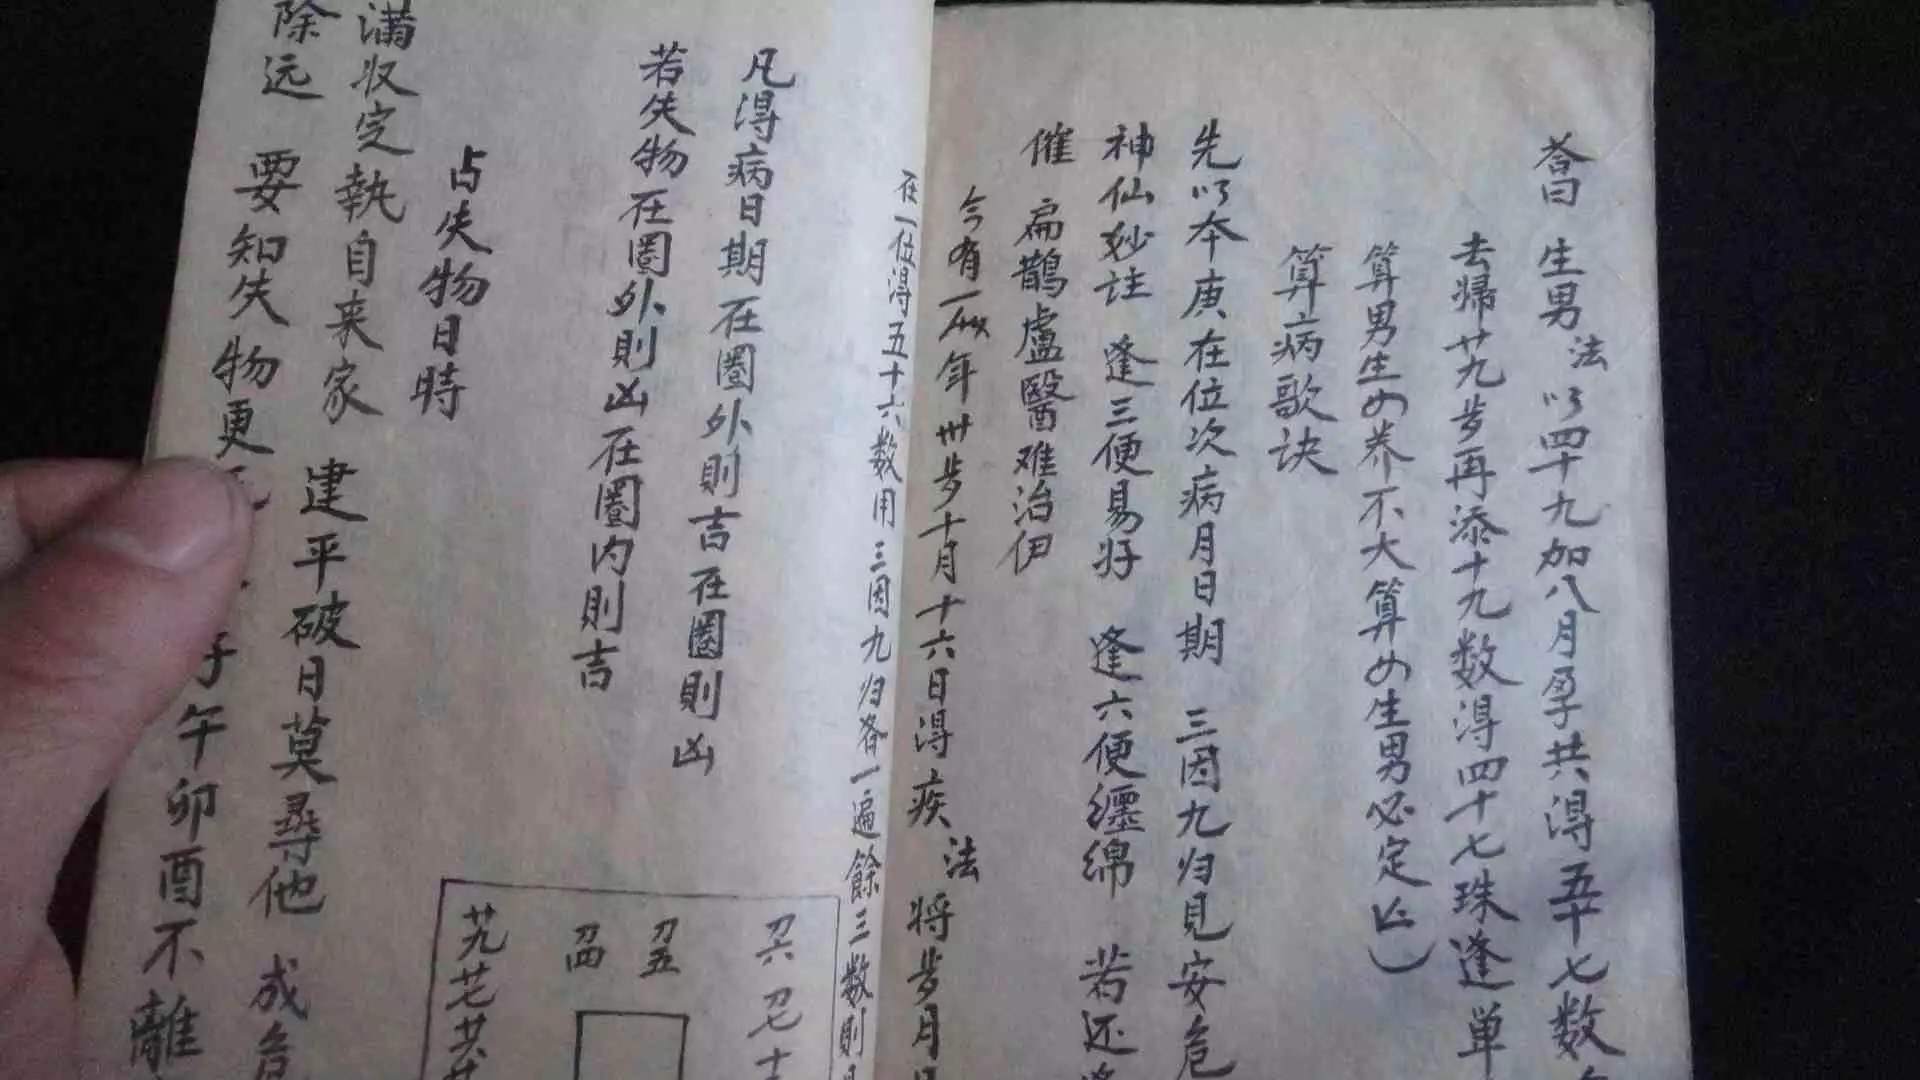 荅曰 生男法 以四十九加八月孕共得五十七数
去帰廿九步再添十九数得四十七珠逢单
算男生女养不大算女生男必定亡
算病歌诀
先以本庚在位次病月日期 三因九归見安危
神仙妙註 逢三便易好 逢六便纒绵 若还
催 扁鹊盧醫难治伊
今有一人年卅步十月十六日得疾 法 将步月
在一位得五十六数用三因九归各一遍餘三数則
凡得病日期在圈外則吉在圈則凶
若失物在圈外則凶在圈内則吉
占失物日時
满収定執自来家 建平破日莫尋他 成危
除远 要知失物更 子午卯酉不離
芀九 芀七 廿六
初四 初五 初六 初七 十